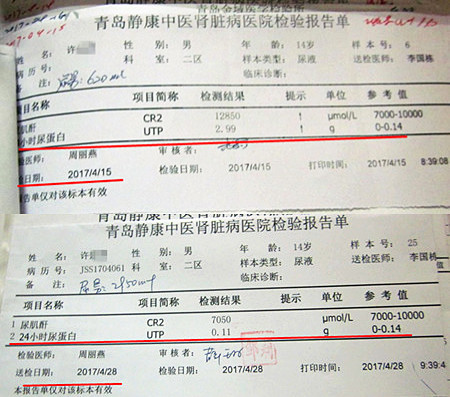 2017-04-15
青岛静康中医肾脏病医院检验报告单
姓 名: 许 性 别: 男 年 龄: 14岁 样 本 号: 6
病 历 号: 科 室: 二区 样本类型: 尿液 送检医师: 李国栋
备 注: 尿量:600ml 临床诊断:
项目名称 项目简称 检测结果 提示 单位 参 考 值
尿肌酐 CR2 12850 ↑ μmol/L 7000-10000
小时尿蛋白 UTP 2.99 ↑ g 0-0.14
检验医师: 周丽燕 审 核 者:
检日期: 2017/4/15 检验日期: 2017/4/15 打印时间: 2017/4/15 8:39:08
报告单仅对该标本有效
青岛静康中医肾脏病医院检验报告单
姓 名: 许 性 别: 男 年 龄: 14岁 样 本 号: 25
病 历 号: JSS1704061 科 室: 二区 样本类型: 尿液 送检医师: 李国栋
备 注: 尿量:2150ml 临床诊断:
项目名称 项目简称 检测结果 提示 单位 参 考 值
1 尿肌酐 CR2 7050 μmol/L 7000-10000
2 24小时尿蛋白 UTP 0.11 g 0-0.14
检验医师: 周丽燕 审 核 者:
送检日期: 2017/4/28 检验日期: 2017/4/28 打印时间: 2017/4/28 9:39:4
本报告单仅对该标本有效